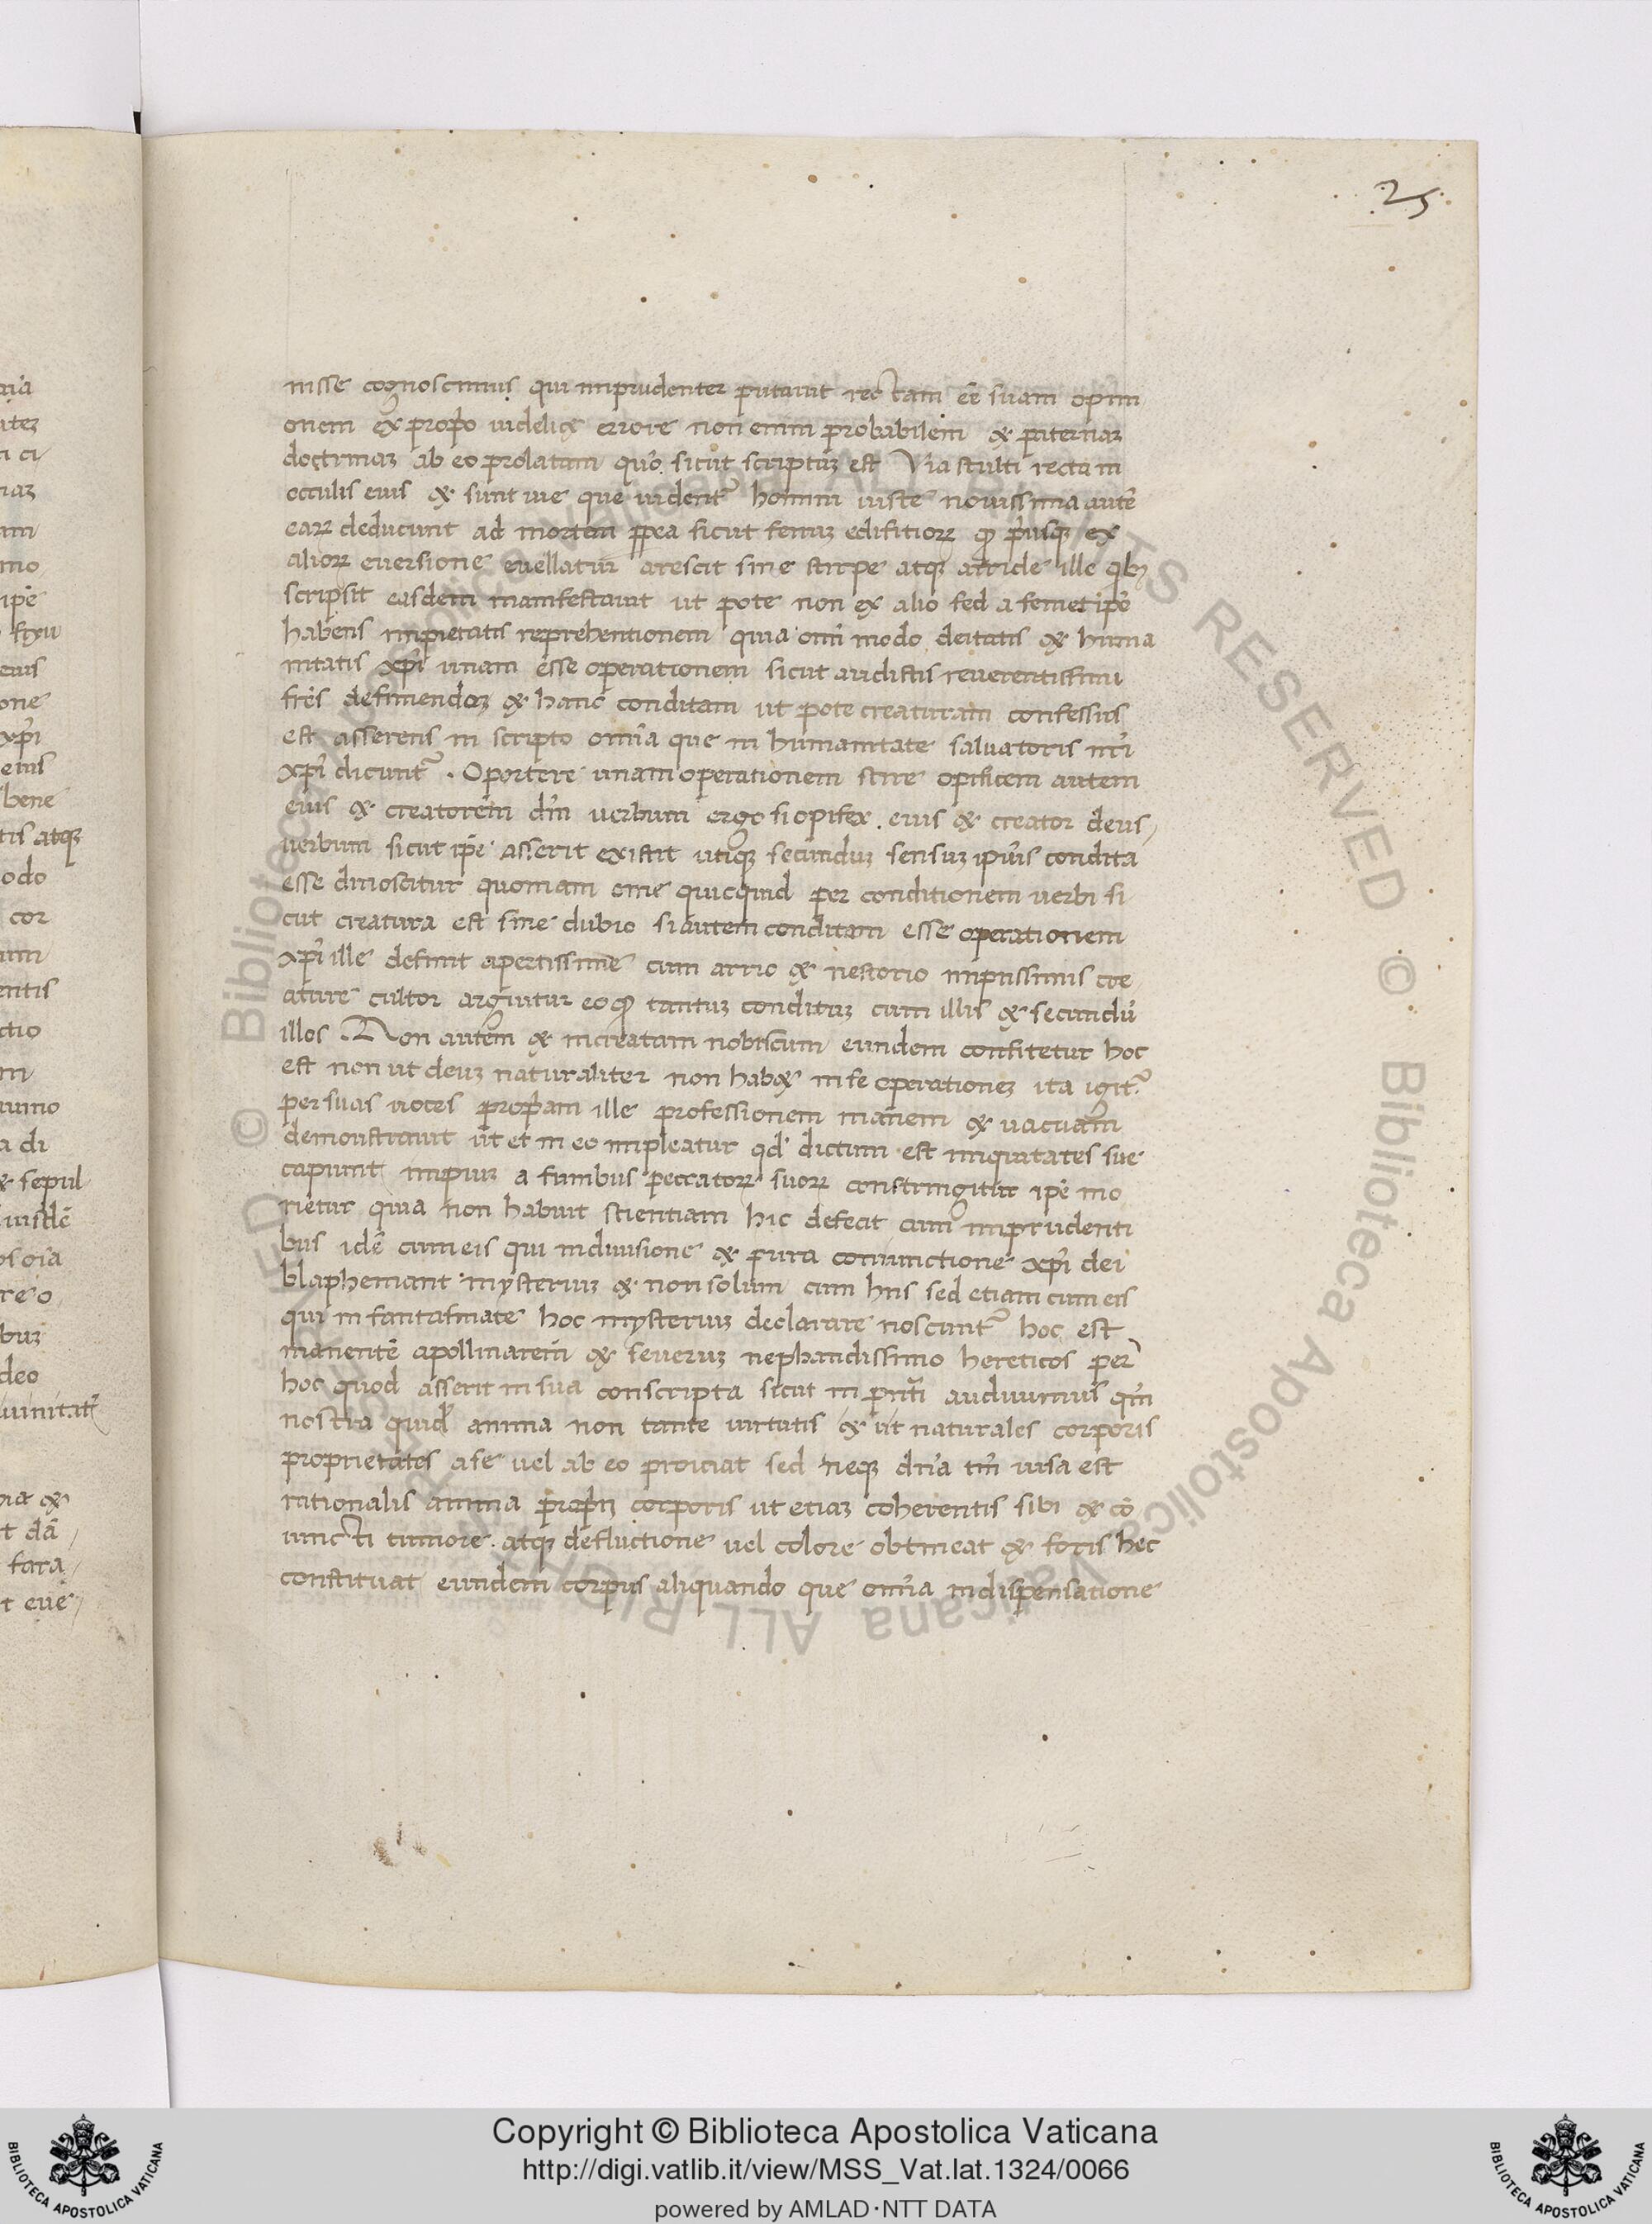 25
nisse cognoscimus qui imprudenter putauit rectam eē suam opini
onem ex prop̄o uideliꝫ errore non enim probabilem & paternaꝫ
doctrinaꝫ ab eo prolatam quō sicut scriptuꝫ est Via stulti recta in
occulis eius & sunt uie que uident᷑ homini iuste nouissima autē
earꝝ deducunt ad mortem ꝓpea sicut fenuꝫ edifitiorꝝ qđ p̄usqꝫ ex
aliorꝝ euersione euellatur arescit sine stirpe atqꝫ
scripsit easdem manifestauit ut pote non ex alio sed a semetipō
habens impietatis reprehentionem quia omī modo deitatis & huma
nitatis xp̄i unam esse operationem sicut audistis reuerentissimi
frēs definiendoꝫ & hanc conditam ut pote creaturam confessus
est asserens in scripto omīa que in humanitate saluatoris nr̄i
xp̄i dicunt᷑. Oportere unam operationem scire opificem autem
eius & creatorem dm̄ uerbum ergo si opifex. eius & creator deus
uerbum sicut ipē asserit existit utiqꝫ secunduꝫ sensuꝫ ipīus condita
esse dinoscitur quoniam ome quicquid per conditionem uerbi si
cut creatura est sine dubio si autem conditam esse operationem
xp̄i ille definit apertissime cum arrio & nestorio impiissimis cre
ature cultor arguitur eo qđ tantuꝫ condituꝫ cum illis & secundū
illos. Non autem & increatam nobiscum eundem confitetur hoc
est non ut deuꝫ naturaliter non habꝫ in se operationeꝫ ita igit᷑
per suas uoces prop̄am ille professionem inanem & uacuam
demonstrauit ut et in eo impleatur qd̄ dictum est iniquitates sue
capiunt impiuꝫ a funibus peccatorꝝ suorꝝ constringitur ipē mo
rietur quia non habuit scientiam hic defecit cum imprudenti
bus idē cum eis qui in diuisione & pura coniunctione xp̄i dei
blaphemant mysteriuꝫ & non solum cum hiis sed etiam cum eis
qui in fantasmate hoc mysteriuꝫ declarare noscunt᷑ hoc est
manentē apollinarem & seueruꝫ nephandissimo hereticos per
hoc quod asserit in sua conscripta sicut in pn̄ti audiuimus qm̄
nostra quid̄ anima non tante uirtutis & ut naturales corporis
proprietates a se uel ab eo proiciat sed neqꝫ dn̄a tm̄ uisa est
rationalis anima prop̄ii corporis ut etiaꝫ coherentis sibi & cō
iuncti tumore. atqꝫ defluctione uel colore obtineat & foris hec
constituat eundem corpus aliquando que omīa in dispensatione
Copyright © Biblioteca Apostolica Vaticana
http://digi.vatlib.it/view/MSS_Vat.lat.1324/0066
powered by AMLAD·NTT DATA